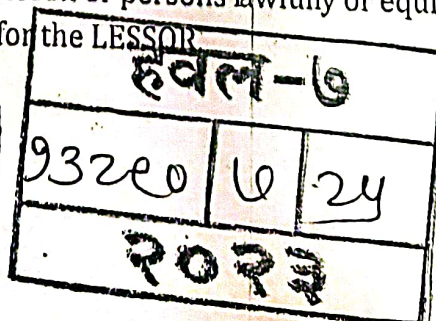 or persons lawfully or equi
for the LESSOR
हवल-७
१३२९० ७ २५
२०२३